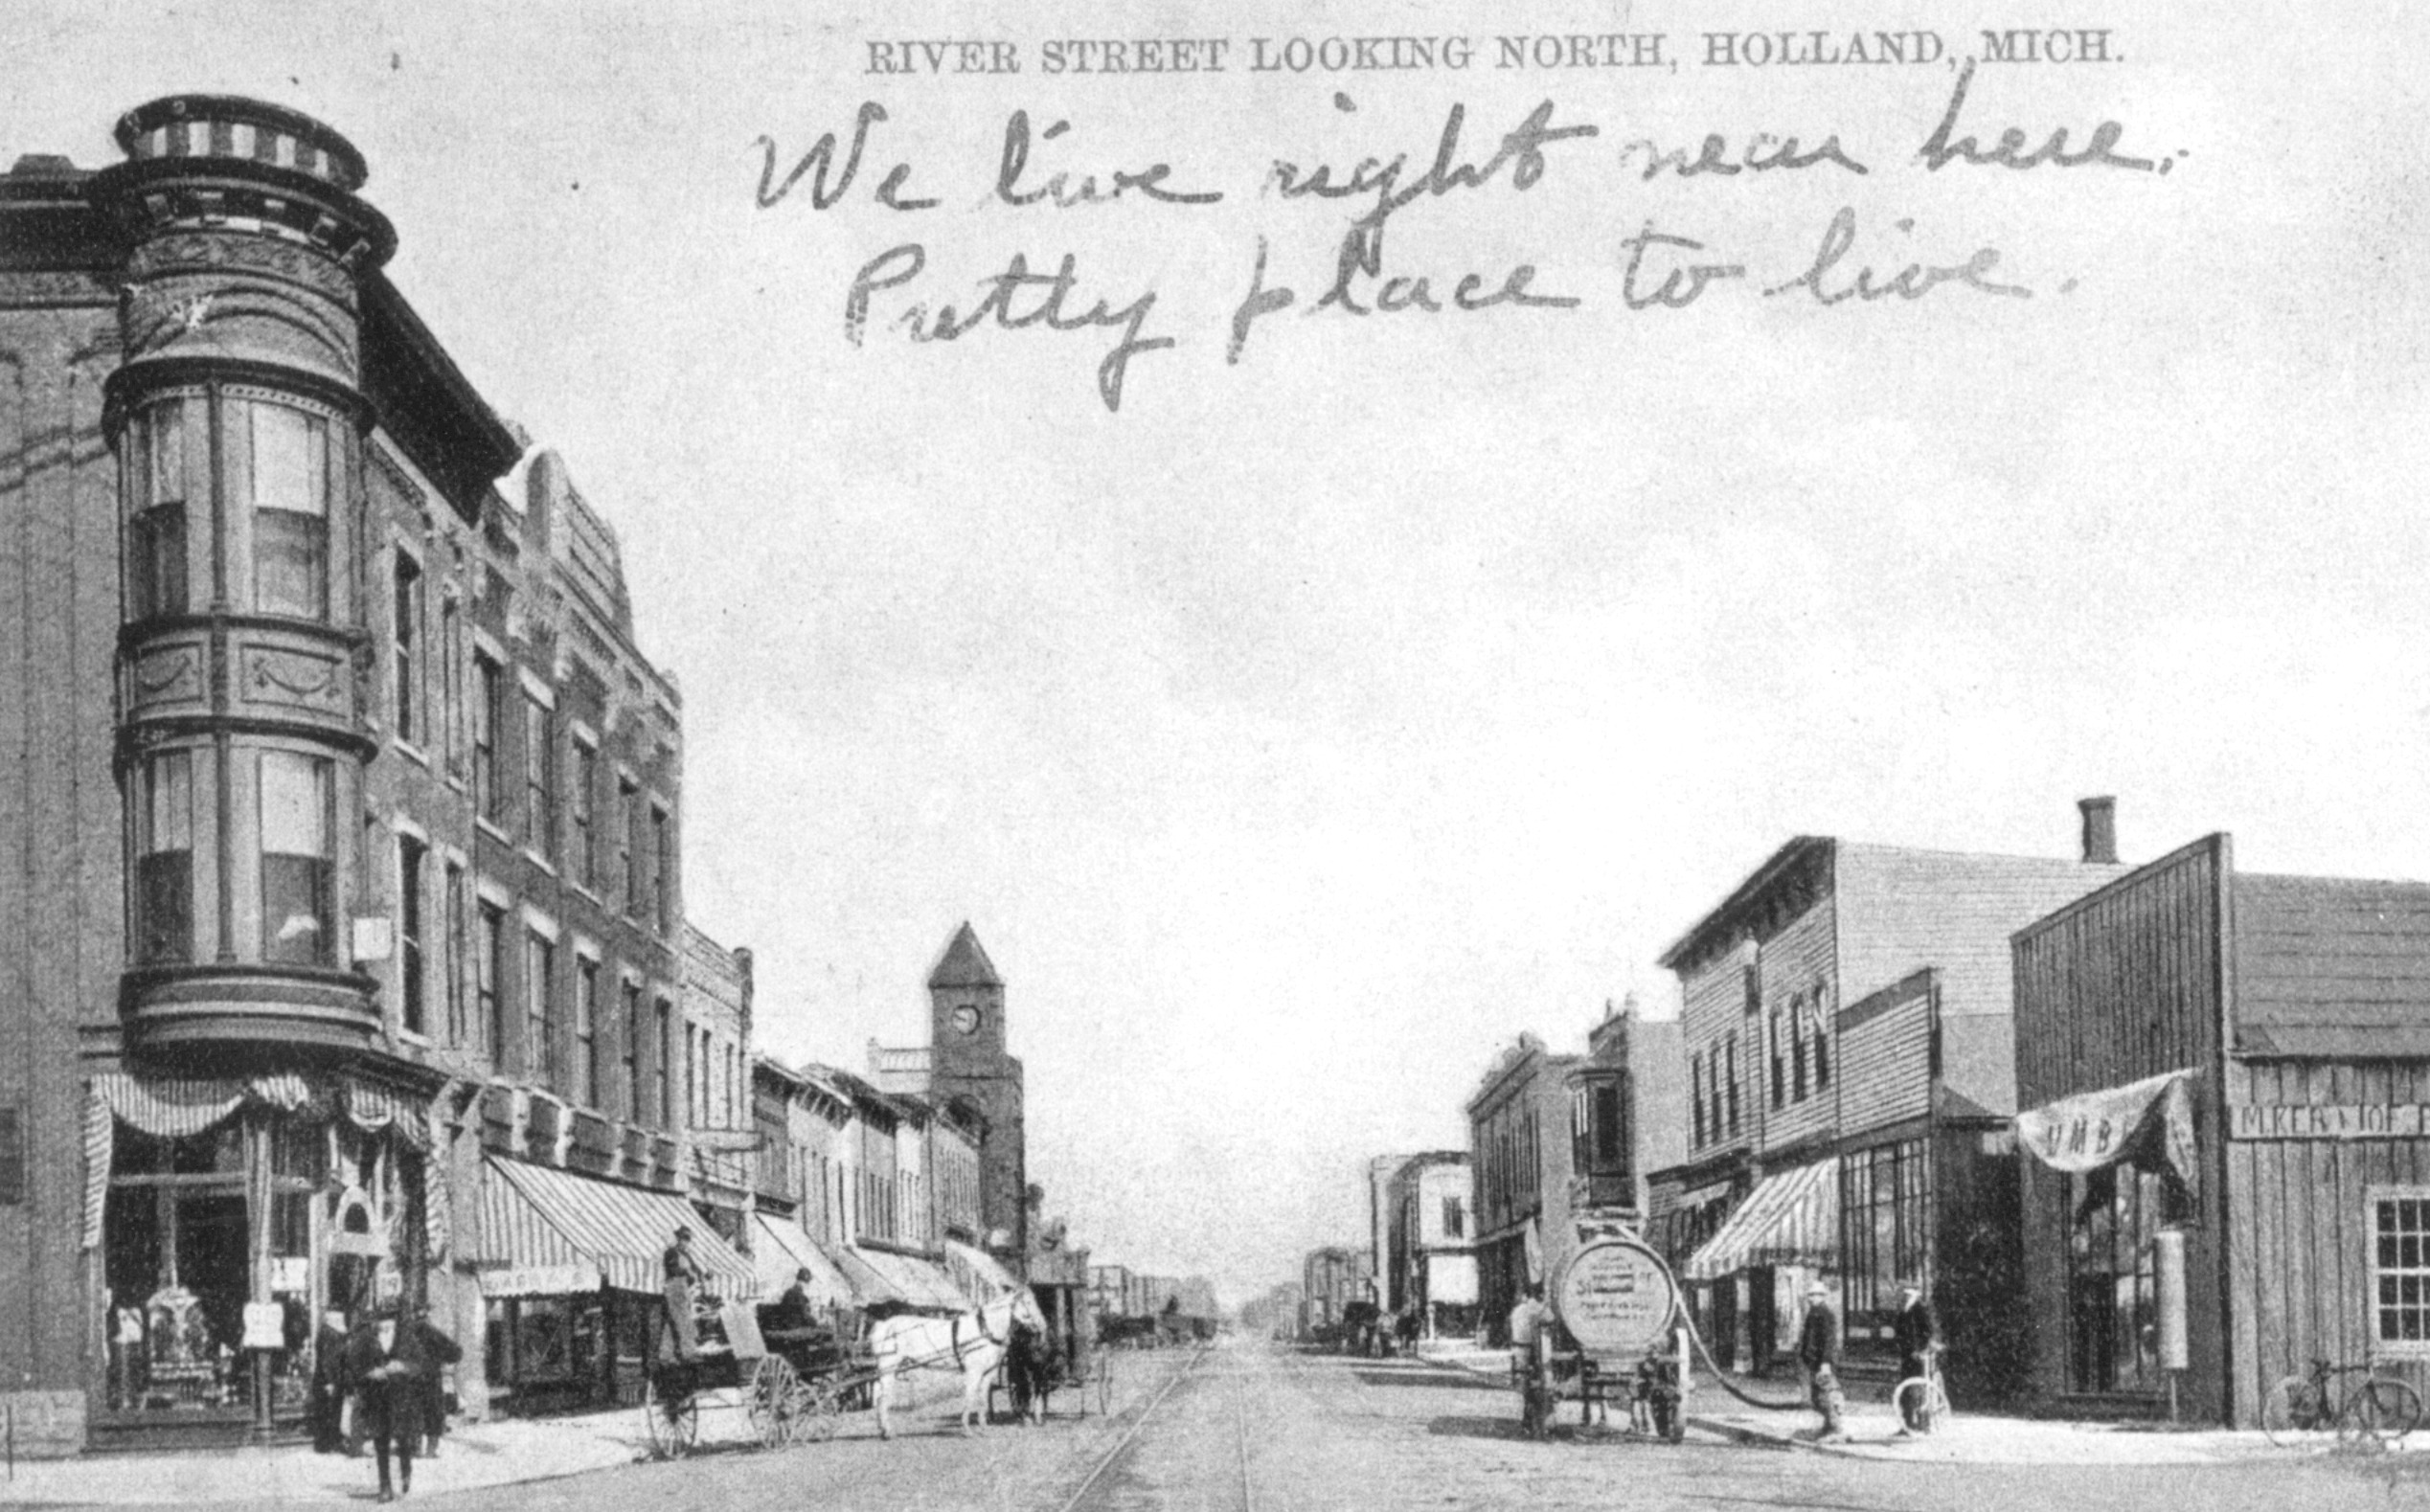 RIVER STREET LOOKING NORTH, HOLLAND, MICH.
We live right near here.
Pretty place to live.
UMB